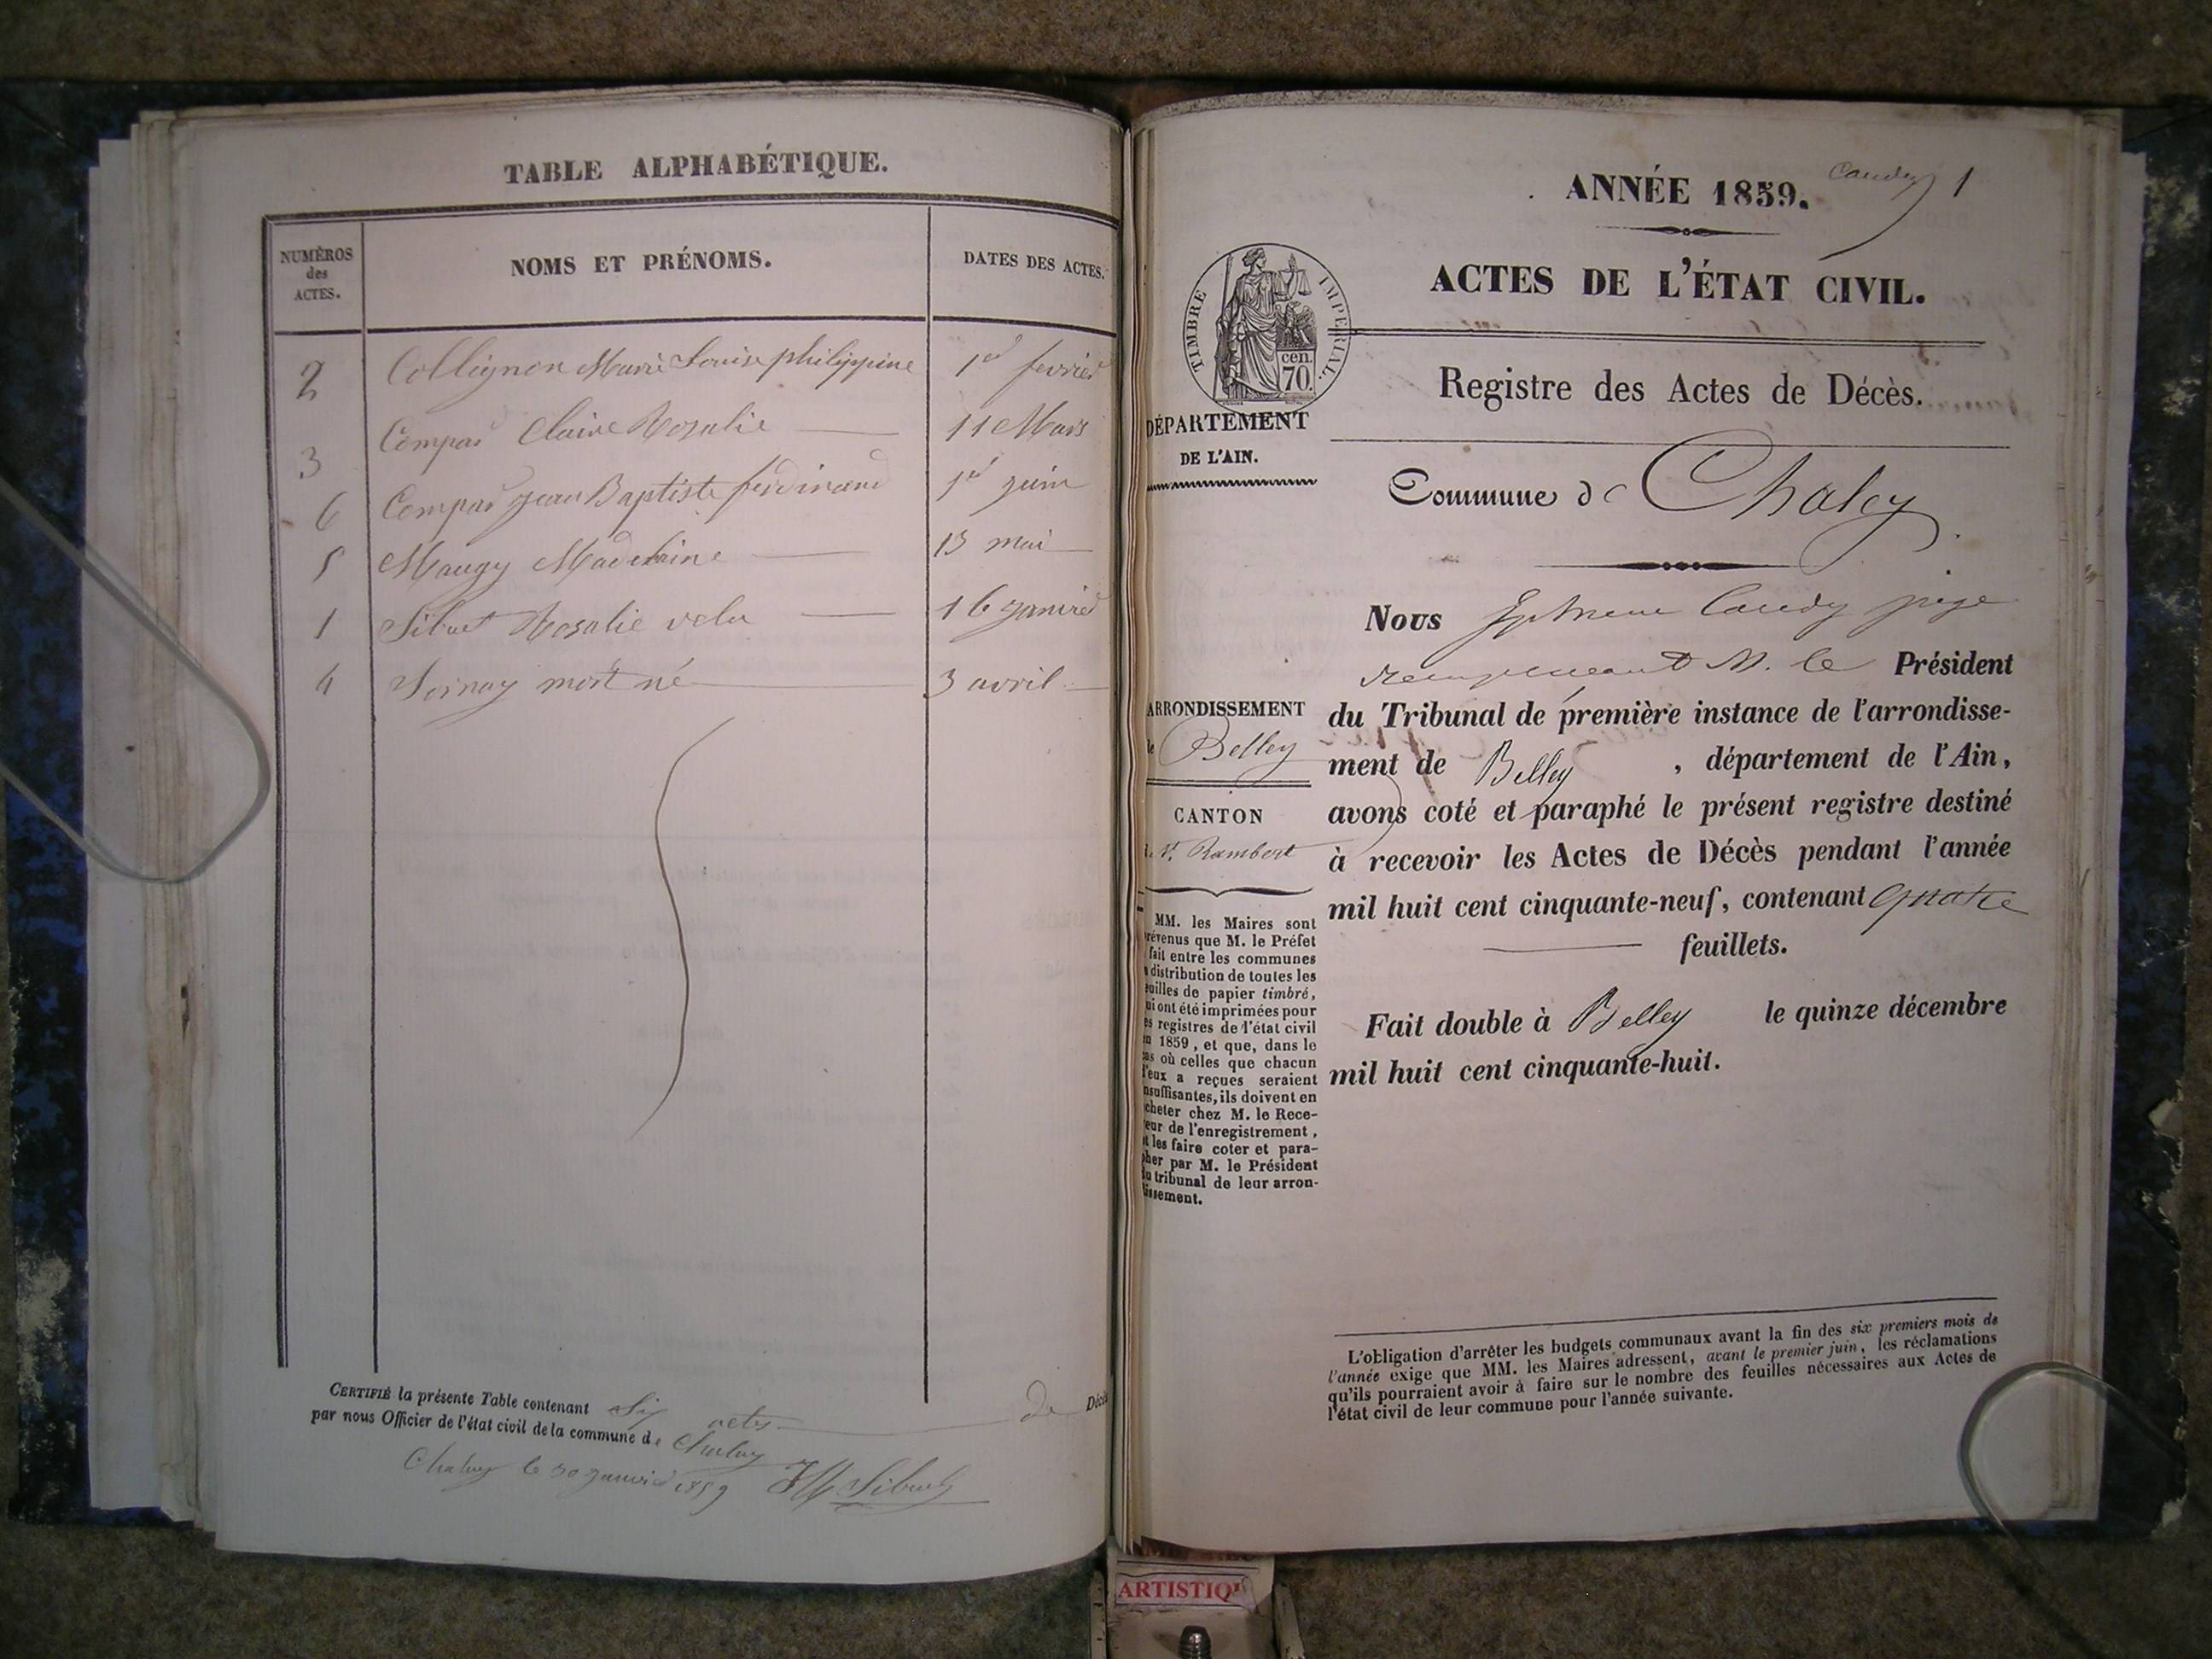 TABLE ALPHABÉTIQUE.
NUMÉROS des ACTES.
NOMS ET PRÉNOMS.
DATES DES ACTES.
2 Collignon Marie Louise philippine 1er fevrier
3 Compas Claire Rosalie 11 Mars
6 Compas Jean Baptiste ferdinand 1er juin
5 Maugy Madelaine 13 mai
1 Sibuet Rosalie 16 janvier
4 mort né 3 avril
CERTIFIÉ la présente Table contenant Six actes de Décès
par nous Officier de l'état civil de la commune de Chaley
Chaley le 30 janvier 1859 Sibuet
ANNÉE 1859.
Caudy 1
ACTES DE L'ÉTAT CIVIL.
TIMBRE IMPERIAL.
cen.
70.
Registre des Actes de Décès.
DÉPARTEMENT
DE L'AIN.
Commune de Chaley
Nous Caudy juge
remplaçant M. le Président
du Tribunal de première instance de l'arrondisse-
ment de Belley , département de l'Ain,
avons coté et paraphé le présent registre destiné
à recevoir les Actes de Décès pendant l'année
mil huit cent cinquante-neuf, contenant quatre
feuillets.
Fait double à Belley le quinze décembre
mil huit cent cinquante-huit.
ARRONDISSEMENT
de Belley
CANTON
de St. Rambert
MM. les Maires sont
prévenus que M. le Préfet
fait entre les communes
la distribution de toutes les
feuilles de papier timbré,
qui ont été imprimées pour
les registres de l'état civil
en 1859, et que, dans le
cas où celles que chacun
d'eux a reçues seraient
insuffisantes, ils doivent en
acheter chez M. le Rece-
veur de l'enregistrement,
et les faire coter et para-
pher par M. le Président
du tribunal de leur arron-
dissement.
L'obligation d'arrêter les budgets communaux avant la fin des six premiers mois de
l'année exige que MM. les Maires adressent, avant le premier juin, les réclamations
qu'ils pourraient avoir à faire sur le nombre des feuilles nécessaires aux Actes de
l'état civil de leur commune pour l'année suivante.
ARTISTIQ